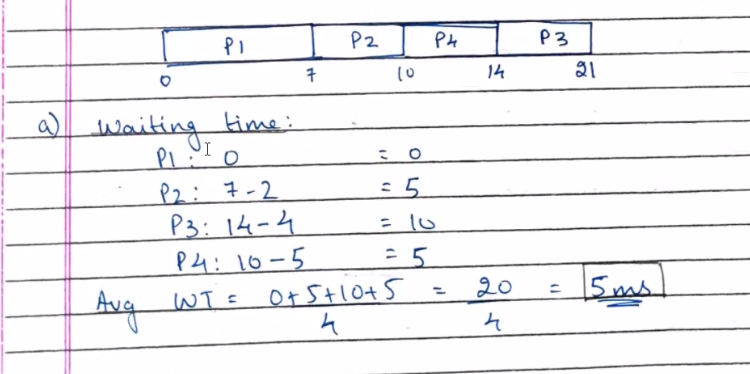 P1 P2 P4 P3
0 7 10 14 21
a) Waiting time:
P1: 0 = 0
P2: 7-2 = 5
P3: 14-4 = 10
P4: 10-5 = 5
Avg WT = 0+5+10+5 = 20 = 5ms
4 4